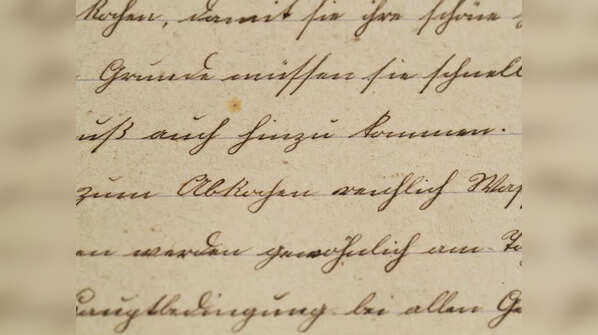 kochen, damit sie ihre schöne
Grunde müssen sie schnell
uß auch hinzu kommen.
zum Abkochen reichlich Waß
en werden gewöhnlich am To
Hauptbedingung bei allen Ge